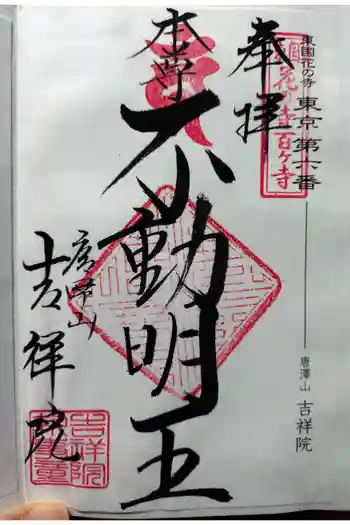 東国花の寺 東京 第六番
唐澤山 吉祥院
東国花の寺百ヶ寺
奉拝
本尊
不動明王
唐澤山
吉祥院
吉祥院